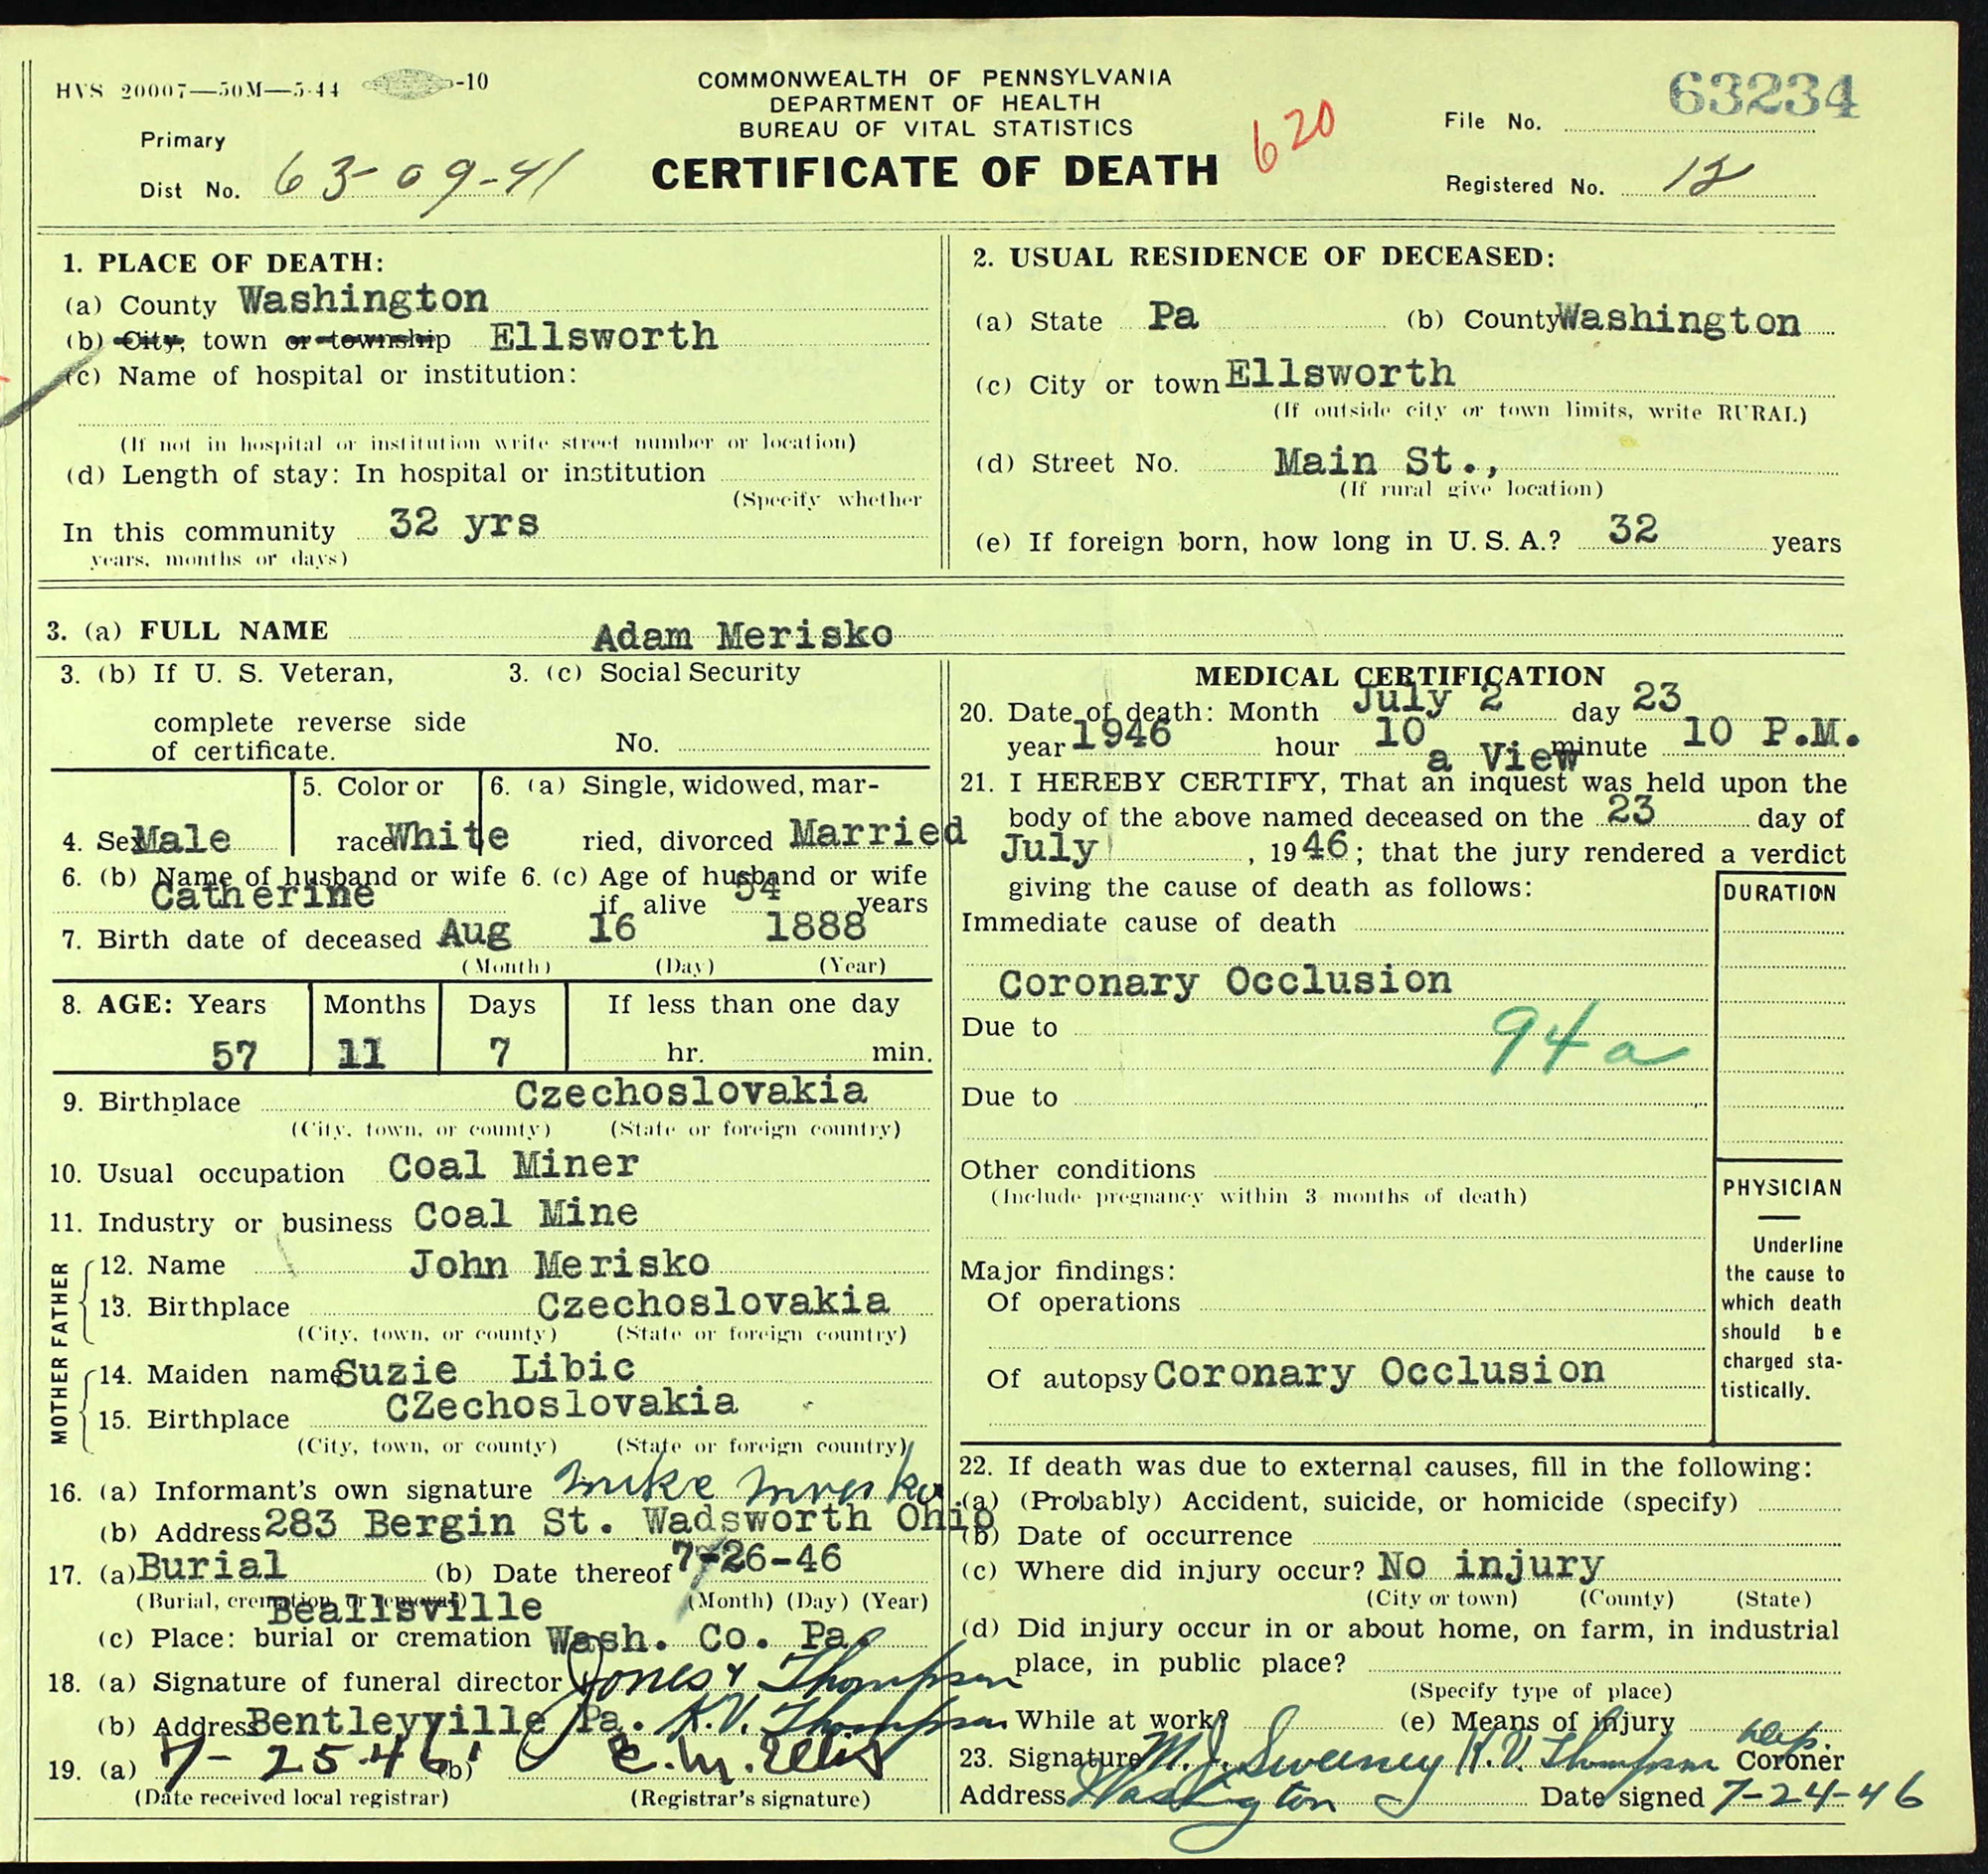 HVS 20007—50M—5-44 -10
COMMONWEALTH OF PENNSYLVANIA
DEPARTMENT OF HEALTH
BUREAU OF VITAL STATISTICS
CERTIFICATE OF DEATH
620
63234
File No.
Primary
Dist No. 63-09-41
Registered No. 12
1. PLACE OF DEATH:
(a) County Washington
(b) City, town or township Ellsworth
(c) Name of hospital or institution:
(If not in hospital or institution write street number or location)
(d) Length of stay: In hospital or institution
(Specify whether
In this community 32 yrs
years, months or days)
2. USUAL RESIDENCE OF DECEASED:
(a) State Pa (b) County Washington
(c) City or town Ellsworth
(If outside city or town limits, write RURAL)
(d) Street No. Main St.,
(If rural give location)
(e) If foreign born, how long in U. S. A.? 32 years
3. (a) FULL NAME Adam Merisko
3. (b) If U. S. Veteran, 3. (c) Social Security
complete reverse side
of certificate. No.
4. Sex Male
5. Color or
race White
6. (a) Single, widowed, mar-
ried, divorced Married
6. (b) Name of husband or wife 6. (c) Age of husband or wife
Catherine if alive 54 years
7. Birth date of deceased Aug 16 1888
(Month) (Day) (Year)
8. AGE: Years Months Days If less than one day
57 11 7 hr. min.
9. Birthplace Czechoslovakia
(City, town, or county) (State or foreign country)
10. Usual occupation Coal Miner
11. Industry or business Coal Mine
FATHER
12. Name John Merisko
13. Birthplace Czechoslovakia
(City, town, or county) (State or foreign country)
MOTHER
14. Maiden name Suzie Libic
15. Birthplace CZechoslovakia
(City, town, or county) (State or foreign country)
16. (a) Informant's own signature Mike
(b) Address 283 Bergin St. Wadsworth Ohio
17. (a) Burial (b) Date thereof 7-26-46
(Burial, cremation or removal) (Month) (Day) (Year)
Beallsville
(c) Place: burial or cremation Wash. Co. Pa.
18. (a) Signature of funeral director Jones & Thompson
(b) Address Bentleyville Pa. K.V. Thompson
19. (a) 7-25-46 (b) C. M. Ellis
(Date received local registrar) (Registrar's signature)
MEDICAL CERTIFICATION
20. Date of death: Month July 2 day 23
year 1946 hour 10 minute 10 P.M.
a View
21. I HEREBY CERTIFY, That an inquest was held upon the
body of the above named deceased on the 23 day of
July , 1946; that the jury rendered a verdict
giving the cause of death as follows:
DURATION
Immediate cause of death
Coronary Occlusion
Due to 94a
Due to
Other conditions
(Include pregnancy within 3 months of death)
Major findings:
Of operations
Of autopsy Coronary Occlusion
PHYSICIAN
Underline
the cause to
which death
should be
charged sta-
tistically.
22. If death was due to external causes, fill in the following:
(a) (Probably) Accident, suicide, or homicide (specify)
(b) Date of occurrence
(c) Where did injury occur? No injury
(City or town) (County) (State)
(d) Did injury occur in or about home, on farm, in industrial
place, in public place?
(Specify type of place)
While at work? (e) Means of injury
23. Signature M. J. Sweeney K.V. Thompson Dep. Coroner
Address Washington Date signed 7-24-46